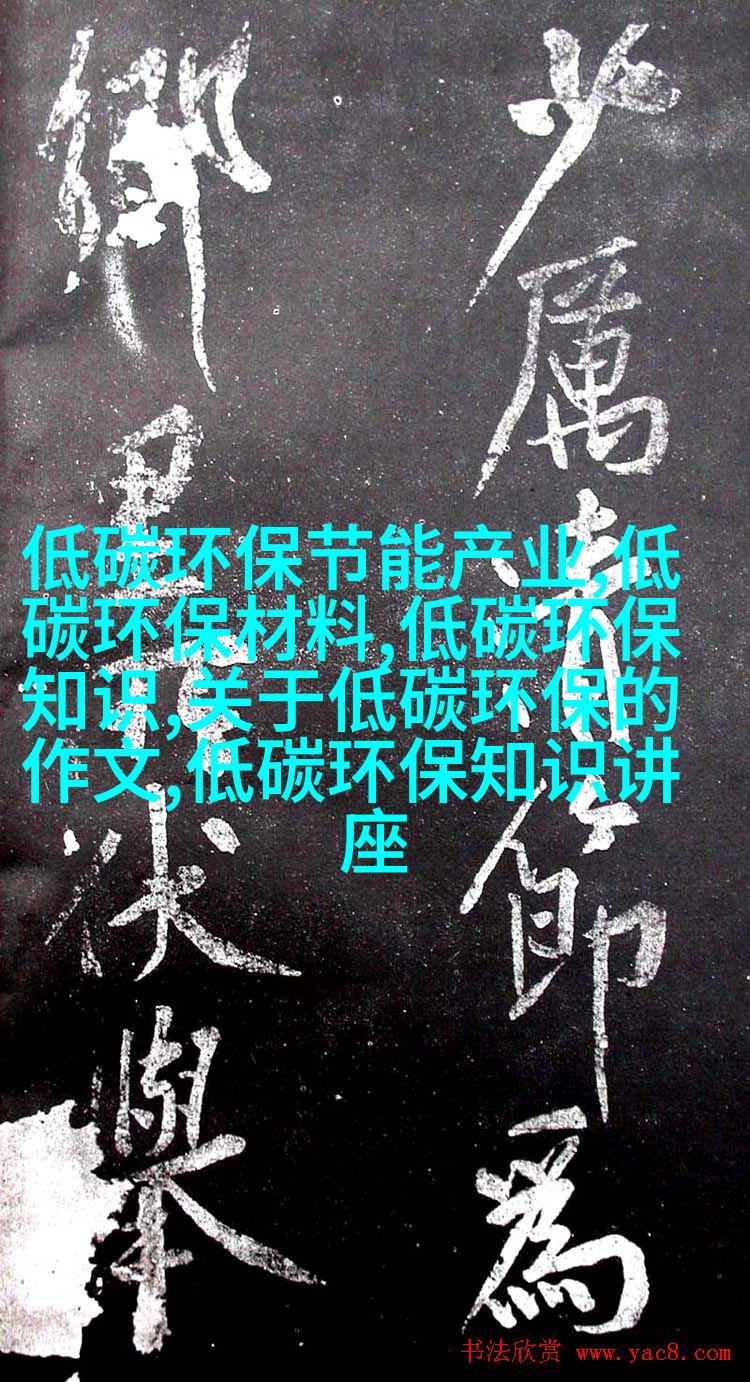 少厲清節為
鄉里伏舉
低碳环保节能产业,低
碳环保材料,低碳环保
知识,关于低碳环保的
作文,低碳环保知识讲
座
书法欣赏 www.yac8.com